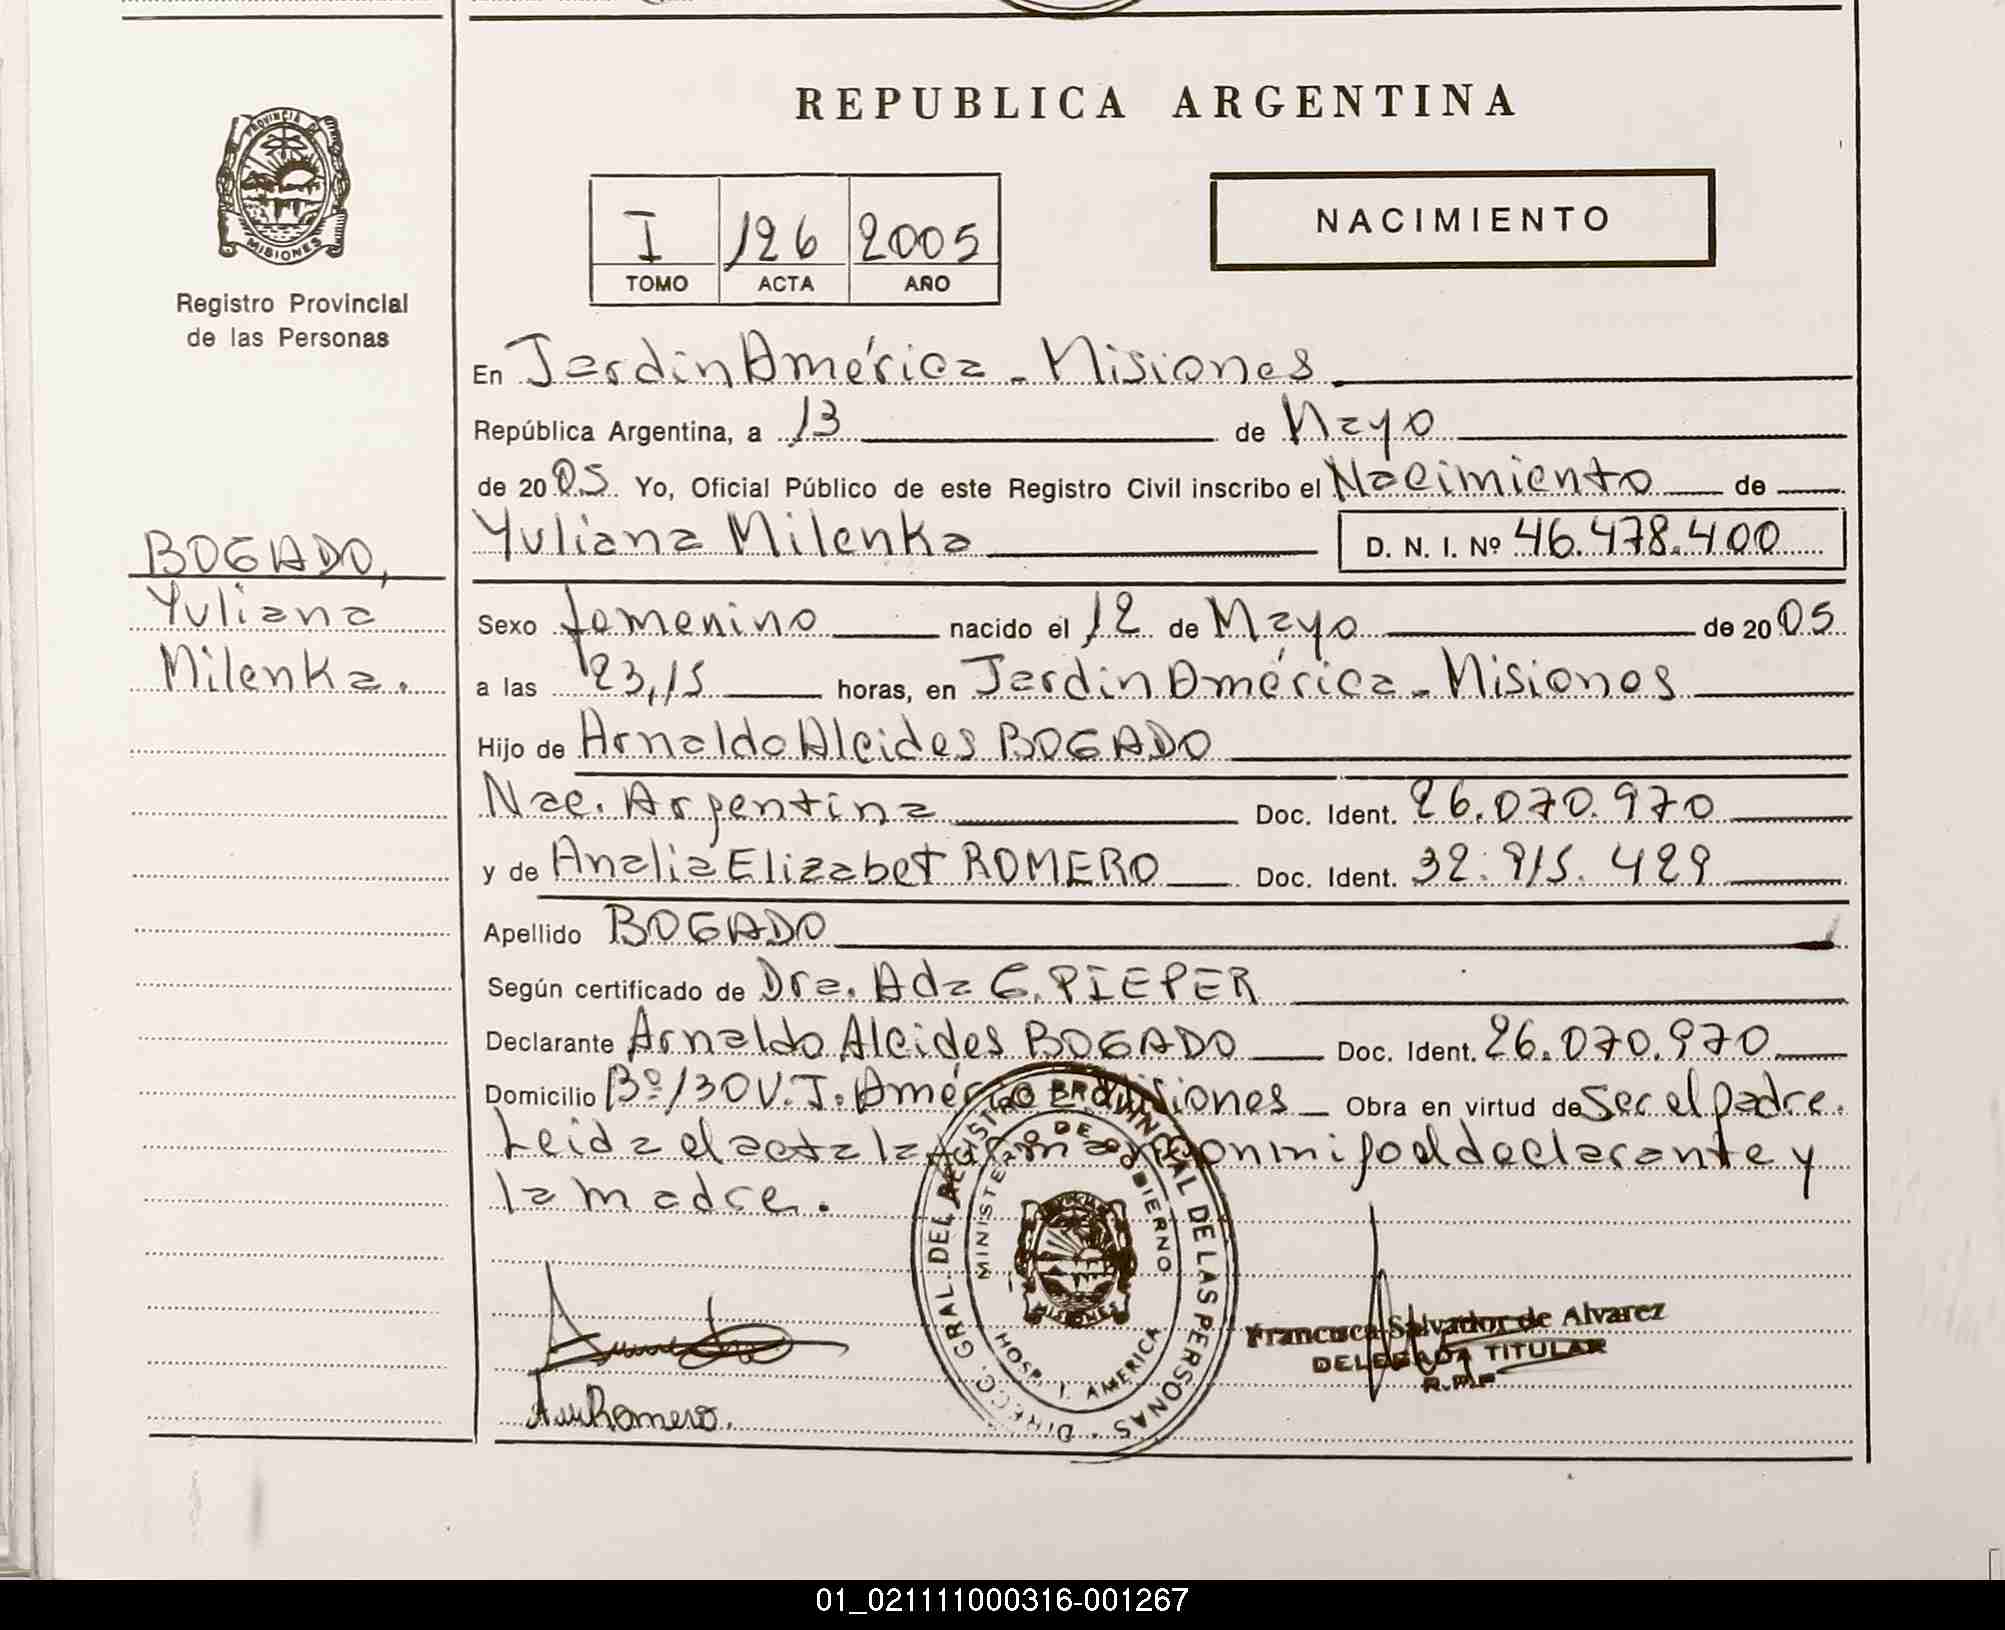 REPUBLICA ARGENTINA
PROVINCIA DE MISIONES
Registro Provincial
de las Personas
I 126 2005
TOMO ACTA AÑO
NACIMIENTO
BOGADO,
Yuliana
Milenka.
En Jardin América - Misiones
República Argentina, a 13 de Mayo
de 2005 Yo, Oficial Público de este Registro Civil inscribo el Nacimiento de
Yuliana Milenka D. N. I. Nº 46.478.400
Sexo femenino nacido el 12 de Mayo de 2005
a las 23,15 horas, en Jardin América - Misiones
Hijo de Arnaldo Alcides BOGADO
Nac. Argentina Doc. Ident. 26.070.970
y de Analia Elizabet ROMERO Doc. Ident. 32.915.429
Apellido BOGADO
Según certificado de Dra. Ada G. PIEPER
Declarante Arnaldo Alcides BOGADO Doc. Ident. 26.070.970
Domicilio Bº 130 V. J. América Misiones Obra en virtud de Ser el padre.
Leida el acta la firman conmigo el declarante y
la madre.
DIRECC. GRAL. DEL REGISTRO PROVINCIAL DE LAS PERSONAS
MINISTERIO DE GOBIERNO
MISIONES
HOSP. J. AMERICA
Romero.
Francisca Salvador de Alvarez
DELEGADA TITULAR
R.P.P
01_021111000316-001267